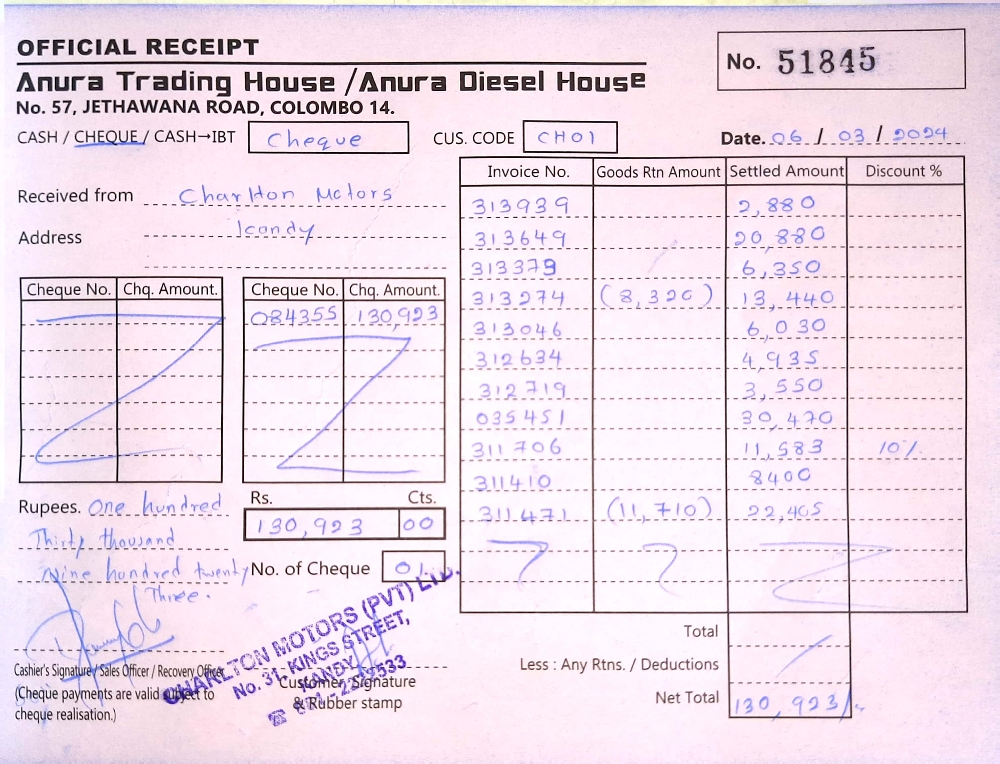 OFFICIAL RECEIPT
No. 51845
Anura Trading House / Anura Diesel House
No. 57, JETHAWANA ROAD, COLOMBO 14.
CASH / CHEQUE / CASH→IBT Cheque CUS. CODE CH01 Date. 06 / 03 / 2024
Received from Charlton Motors
Address Kandy
Cheque No. Chq. Amount. Cheque No. Chq. Amount.
084355 130,923
Rupees. One hundred
Thirty thousand
Nine hundred twenty
Three.
Rs. Cts.
130,923 00
No. of Cheque 01
Invoice No. Goods Rtn Amount Settled Amount Discount %
313939 2,880
313649 20,880
313379 6,350
313274 (8,320) 13,440
313046 6,030
312634 4,935
312719 3,550
035451 30,470
311706 11,583 10%
311410 8400
311471 (11,710) 22,405
Total
Less : Any Rtns. / Deductions
Net Total 130,923/-
Cashier's Signature / Sales Officer / Recovery Officer
(Cheque payments are valid subject to
cheque realisation.)
CHARLTON MOTORS (PVT) LTD.
No. 31, KINGS STREET,
KANDY
Customer Signature
& Rubber stamp